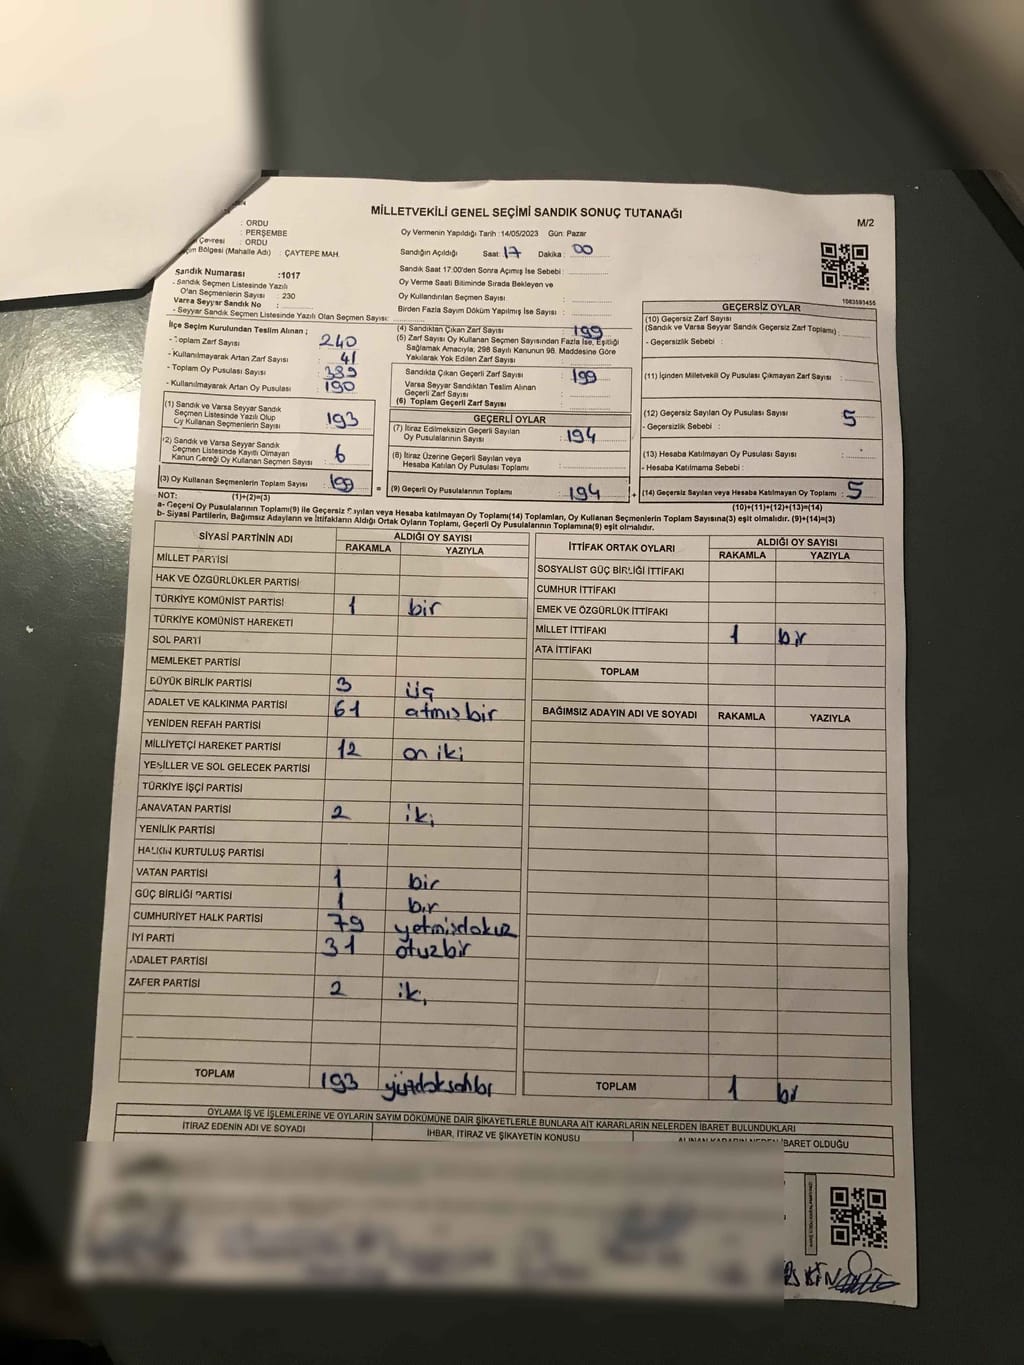 MİLLETVEKİLİ GENEL SEÇİMİ SANDIK SONUÇ TUTANAĞI
M/2
: ORDU
: PERŞEMBE
Çevresi : ORDU
Bölgesi (Mahalle Adı) : ÇAYTEPE MAH.
Oy Vermenin Yapıldığı Tarih :14/05/2023 Gün: Pazar
Sandığın Açıldığı Saat: 17 Dakika : 00
Sandık Saat 17:00'den Sonra Açımış İse Sebebi :
Oy Verme Saati Bitiminde Sırada Bekleyen ve
Oy Kullandırılan Seçmen Sayısı :
Birden Fazla Sayım Döküm Yapılmış İse Sayısı :
Sandık Numarası :1017
- Sandık Seçmen Listesinde Yazılı
Olan Seçmenlerin Sayısı : 230
Varsa Seyyar Sandık No :
- Seyyar Sandık Seçmen Listesinde Yazılı Olan Seçmen Sayısı:
İlçe Seçim Kurulundan Teslim Alınan ;
- Toplam Zarf Sayısı : 240
- Kullanılmayarak Artan Zarf Sayısı : 41
- Toplam Oy Pusulası Sayısı : 389
- Kullanılmayarak Artan Oy Pusulası : 190
(1) Sandık ve Varsa Seyyar Sandık
Seçmen Listesinde Yazılı Olup
Oy Kullanan Seçmenlerin Sayısı : 193
(2) Sandık ve Varsa Seyyar Sandık
Seçmen Listesinde Kayıtlı Olmayan
Kanun Gereği Oy Kullanan Seçmen Sayısı : 6
(3) Oy Kullanan Seçmenlerin Toplam Sayısı : 199
(1)+(2)=(3)
(4) Sandıktan Çıkan Zarf Sayısı : 199
(5) Zarf Sayısı Oy Kullanan Seçmen Sayısından Fazla İse, Eşitliği
Sağlamak Amacıyla, 298 Sayılı Kanunun 98. Maddesine Göre
Yakılarak Yok Edilen Zarf Sayısı :
Sandıkta Çıkan Geçerli Zarf Sayısı : 199
Varsa Seyyar Sandıktan Teslim Alınan
Geçerli Zarf Sayısı :
(6) Toplam Geçerli Zarf Sayısı :
GEÇERLİ OYLAR
(7) İtiraz Edilmeksizin Geçerli Sayılan
Oy Pusulalarının Sayısı : 194
(8) İtiraz Üzerine Geçerli Sayılan veya
Hesaba Katılan Oy Pusulası Toplamı :
= (9) Geçerli Oy Pusulalarının Toplamı : 194
1083593455
GEÇERSİZ OYLAR
(10) Geçersiz Zarf Sayısı
(Sandık ve Varsa Seyyar Sandık Geçersiz Zarf Toplamı) :
- Geçersizlik Sebebi :
(11) İçinden Milletvekili Oy Pusulası Çıkmayan Zarf Sayısı :
(12) Geçersiz Sayılan Oy Pusulası Sayısı : 5
- Geçersizlik Sebebi :
(13) Hesaba Katılmayan Oy Pusulası Sayısı :
- Hesaba Katılmama Sebebi :
+ (14) Geçersiz Sayılan veya Hesaba Katılmayan Oy Toplamı : 5
(10)+(11)+(12)+(13)=(14)
NOT:
a- Geçerli Oy Pusulaları Toplamı(9) ile Geçersiz Sayılan veya Hesaba katılmayan Oy Toplamı(14) Toplamları, Oy Kullanan Seçmenlerin Toplam Sayısına(3) eşit olmalıdır. (9)+(14)=(3)
b- Siyasi Partilerin, Bağımsız Adayların ve İttifakların Aldığı Ortak Oyların Toplamı, Geçerli Oy Pusulalarının Toplamına(9) eşit olmalıdır.
SİYASİ PARTİNİN ADI ALDIĞI OY SAYISI
RAKAMLA YAZIYLA
MİLLET PARTİSİ
HAK VE ÖZGÜRLÜKLER PARTİSİ
TÜRKİYE KOMÜNİST PARTİSİ 1 bir
TÜRKİYE KOMÜNİST HAREKETİ
SOL PARTİ
MEMLEKET PARTİSİ
BÜYÜK BİRLİK PARTİSİ 3 üç
ADALET VE KALKINMA PARTİSİ 61 atmışbir
YENİDEN REFAH PARTİSİ
MİLLİYETÇİ HAREKET PARTİSİ 12 on iki
YEŞİLLER VE SOL GELECEK PARTİSİ
TÜRKİYE İŞÇİ PARTİSİ
ANAVATAN PARTİSİ 2 iki
YENİLİK PARTİSİ
HALKIN KURTULUŞ PARTİSİ
VATAN PARTİSİ 1 bir
GÜÇ BİRLİĞİ PARTİSİ 1 bir
CUMHURİYET HALK PARTİSİ 79 yetmişdokuz
İYİ PARTİ 31 otuzbir
ADALET PARTİSİ
ZAFER PARTİSİ 2 iki
TOPLAM 193
İTTİFAK ORTAK OYLARI ALDIĞI OY SAYISI
RAKAMLA YAZIYLA
SOSYALİST GÜÇ BİRLİĞİ İTTİFAKI
CUMHUR İTTİFAKI
EMEK VE ÖZGÜRLÜK İTTİFAKI
MİLLET İTTİFAKI 1 bir
ATA İTTİFAKI
TOPLAM
BAĞIMSIZ ADAYIN ADI VE SOYADI RAKAMLA YAZIYLA
TOPLAM 1 bir
OYLAMA İŞ VE İŞLEMLERİNE VE OYLARIN SAYIM DÖKÜMÜNE DAİR ŞİKAYETLERLE BUNLARA AİT KARARLARIN NELERDEN İBARET BULUNDUKLARI
İTİRAZ EDENİN ADI VE SOYADI İHBAR, İTİRAZ VE ŞİKAYETİN KONUSU ALINAN KARARIN NEDEN İBARET OLDUĞU